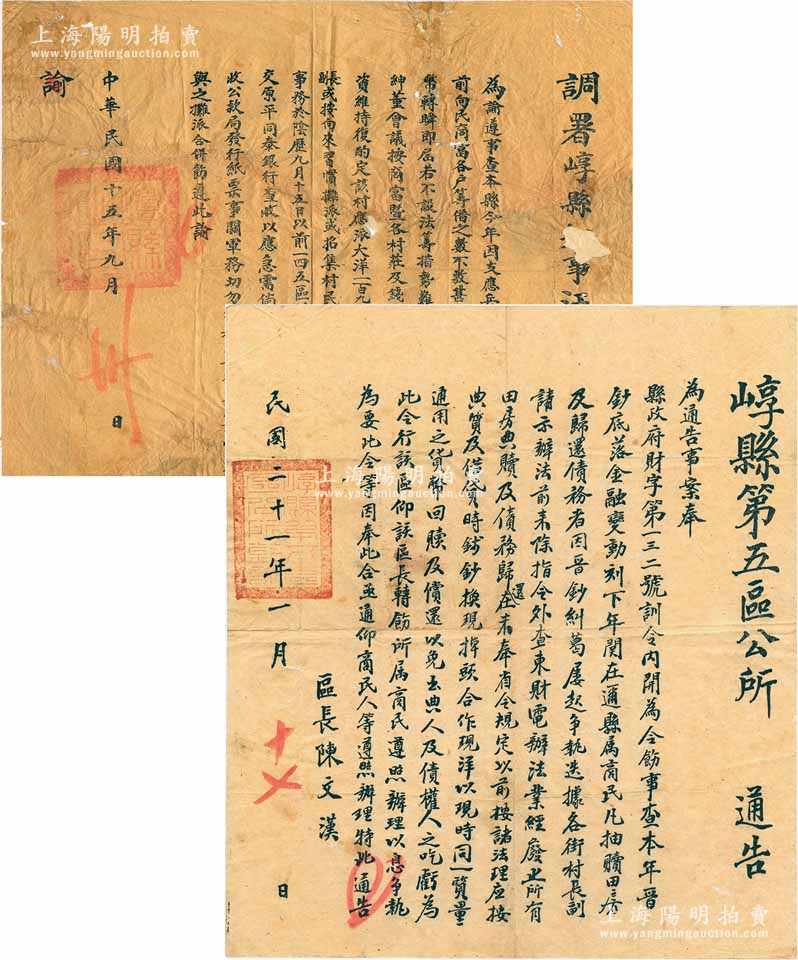 上海陽明拍賣
www.yangmingauction.com
調署崞縣
事
為諭遵事查本縣今年因支應兵
前向民商富各戶籌借之數不敷甚
幣轉瞬即屆若不設法籌措勢難
紳董會議按商富暨各村莊及錢
資維持復酌定該村應派大洋一百九
賬或按向來習慣攤派或招集村民
事務於陰歷九月十五日以前一四五區
交原平同泰銀行查收以應急需倘
收公款局發行紙票事關軍務切勿
與之攤派合併飭遵此諭
中華民國十五年九月
日
諭
崞縣第五區公所 通告
為通告事案奉
縣政府財字第一三二號訓令內開為令飭事查本年晉
鈔底落金融變動刻下年関在邇縣属商民凡抽贖田房
及歸還債務者因晉鈔糾葛屡起爭執迭據各街村長副
請示辦法前来除指令外查東財電辦法業經廢止所有
田房典贖及債務歸還在未奉省令規定以前按諸法理应按
典質及借貸時錢鈔換現掉頭合作現洋以現時同一質量
通用之貨幣回贖及償還以免出典人及債權人之吃虧為
此令行該區仰該區長轉飭所属商民遵照辦理以息爭執
為要此令等因奉此合亟通仰商民人等遵照辦理特此通告
區長陳文漢
民國二十一年一月
十七
日
上海陽明拍賣
www.yangmingauction.com
上海陽明拍賣